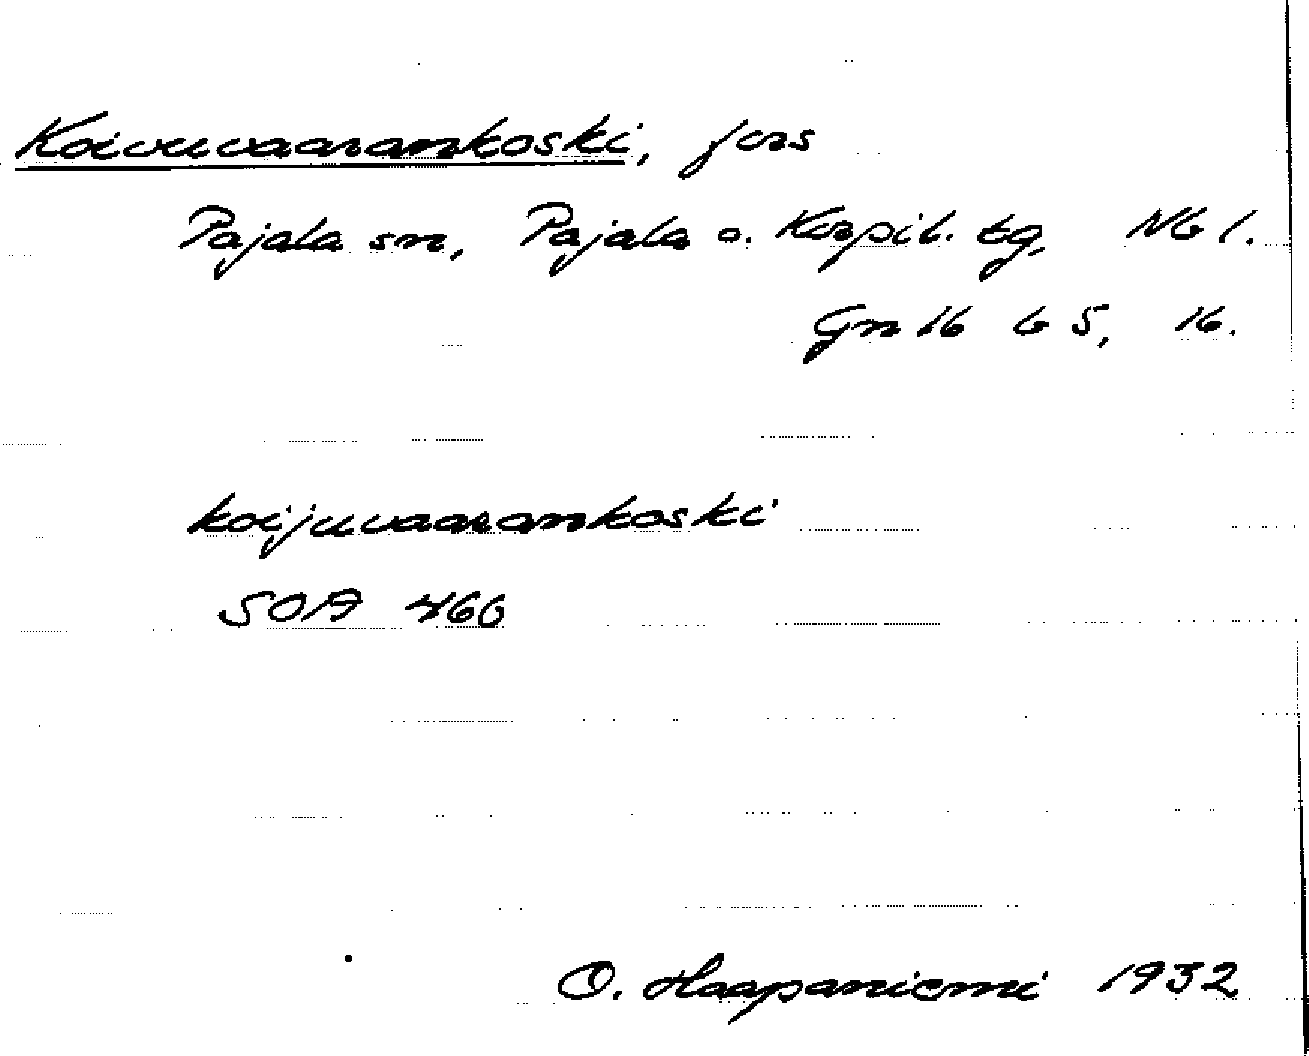 Koivuvaarankoski, fors
Pajala sn, Pajala o. Korpil. tg, Nb l.
Gn 16 b 5, 16.
koijuvaarankoski
SOA 460
O. Haapaniemi 1932